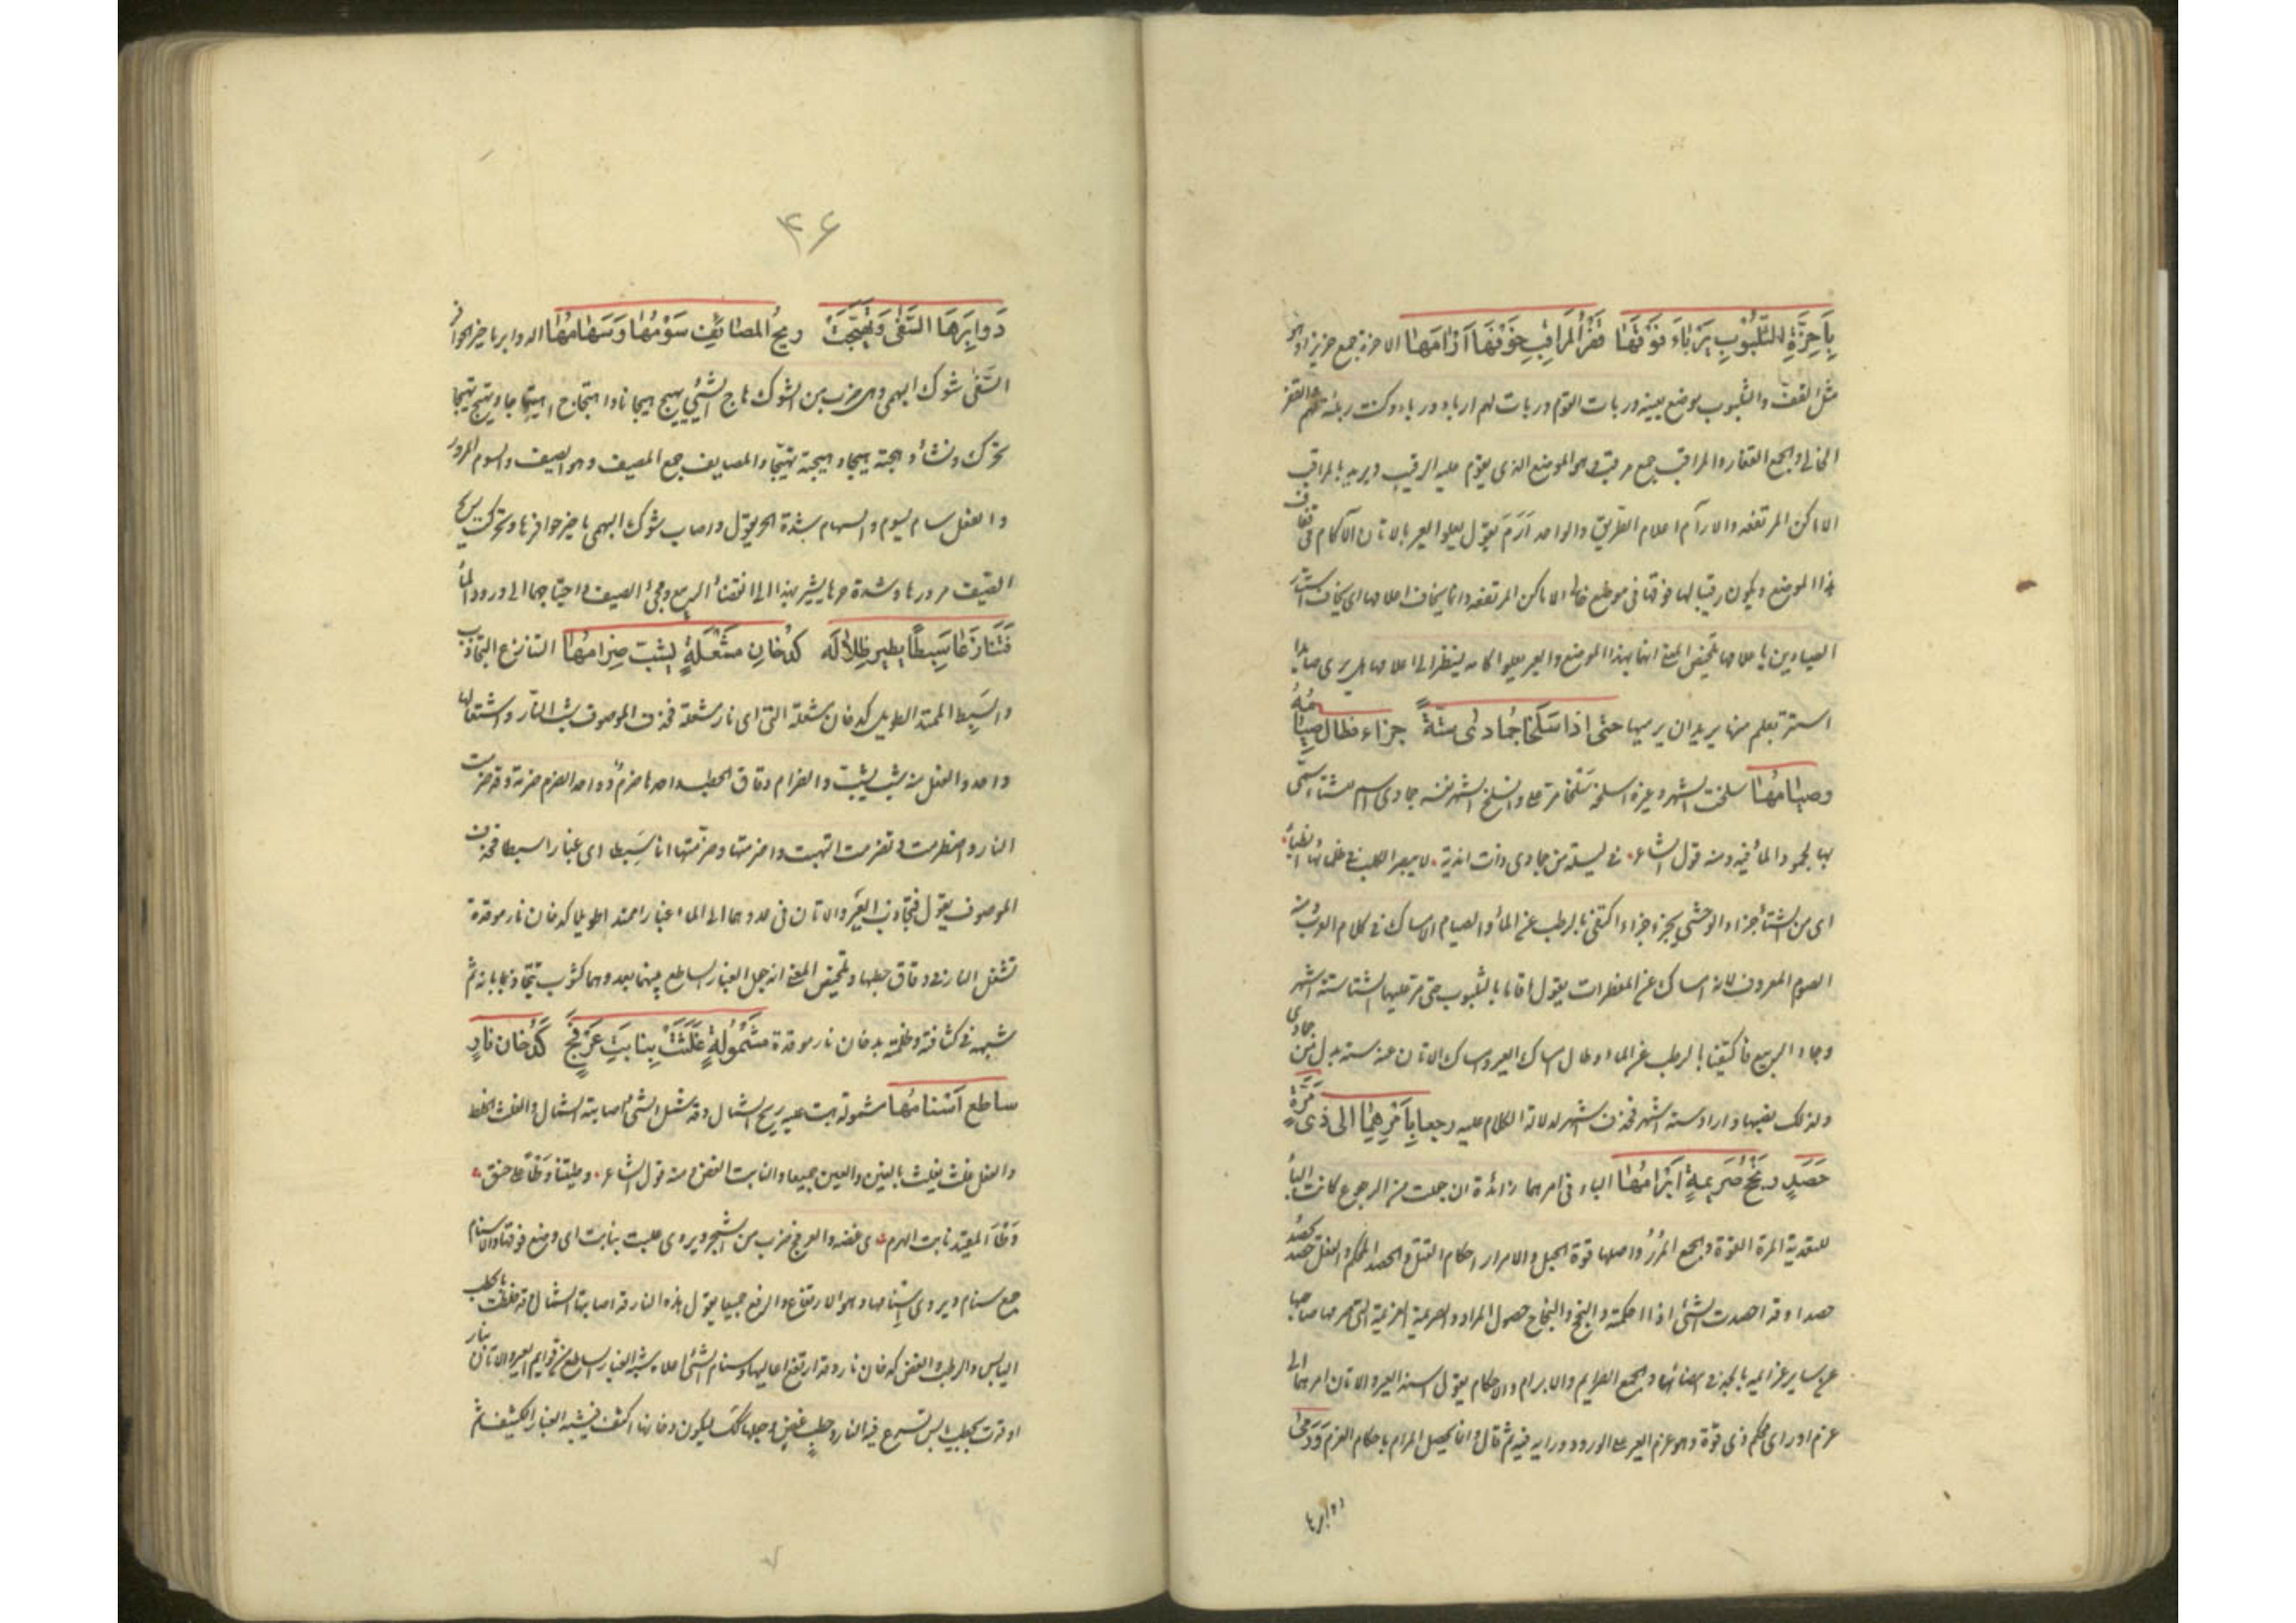 بِأَحِزَّةِ الثَّلَبُوتِ يَرْبَأُ فَوْقَهَا قَفْرَ المَرَاقِبِ خَوْفَهَا آرَامُهَا الاحزة جمع حزيز وهو
مثل القف والثلبوت موضع بعينه وربات القوم وربات لهم اربا وربا وكنت ربيئة لهم القفر
الخالي والجمع القفار والمراقب جمع مرقب وهو الموضع الذى يقوم عليه الرقيب ويريد بالمراقب
الاماكن المرتفعة والارآم اعلام الطريق والواحد اَرَم يقول يعلو العير بالاتان الآكام فى قفاف
هذا الموضع ويكون رقيبا لها فوقها فى موضع خالى الاماكن المرتفعة وانما يخاف اعلامها اى يخاف استتار
الصيادين باعلامها تلخيص المعنى انهما بهذا الموضع والعير يعلو آكامه لينظر الى اعلامها هل يرى صايدا
استتر بعلم منها يريد ان يرميها حتى اذا سلخا جمادى ستةً جزءا فطال صيامُهُ
وصيامُها سلخت الشهر وغيره اسلخه سلخا مر على وانسلخ الشهر نفسه جمادى اسم للشتاء سمى
بها لجمود الماء فيه ومنه قول الشاعر. فى ليلة من جمادى ذات اندية. لا يبصر الكلب فى ظلمائها الطنبا.
اى من الشتاء جزءا والوحشى يجزء جزءا اكتفى بالرطب عن الماء والصيام الامساك فى كلام العرب ومنه
الصوم المعروف لانه امساك عن المفطرات يقول اقاما بالثلبوت حتى مر عليهما الشتا ستة اشهر
وجاء الربيع فاكتفيا بالرطب عن الماء وطال امساك العير وامساك الاتان عنه ستة بدل من جمادى
ولذلك نصبها واراد ستة اشهر فحذف اشهر لدلالة الكلام عليه رجعا بِأَمْرِهِمَا الى ذى مِرَّةٍ
حَصِدٍ ونُجْحُ صَرِيمَةٍ اِبْرَامُهَا الباء فى امرهما زائدة ان جعلت من الرجع كانت الباء
للتعدية المرة القوة والجمع المُرَرُ واصلها قوة الحبل والامرار احكام الفتل والحصد المحكم والفعل حصد يحصد
حصدا وقد احصدت الشئ اذا احكمته والنجح والنجاح حصول المراد والصريمة العزيمة التى صرمها صاحبها
عن ساير عزايمه بالجد فى امضائها والجمع الصرايم والابرام والاحكام يقول اسند العير والاتان امرهما الى
عزم او راى محكم ذى قوة وهو عزم العير على الورود ورايه فيه ثم قال وانما يحصل المرام باحكام العزم وَرَمَى
دوابرها
۴۶
دَوابِرَهَا السَّفَى وَتَهَيَّجَتْ ريحُ المصايفِ سَوْمُهَا وَسَهَامُهَا الدوابر مآخير الحوافر
السَّفَى شوك البهمى وهى ضرب من الشوك هاج الشئ يهيج هيجانا واهتاج اهتياجا وتهيج تهيجا
تحرك ونشأ وهجته هيجا وهيجته تهيجا والمصايف جمع المصيف وهو الصيف والسوم المرور
والفعل سام يسوم والسهام شدة الحر يقول واصاب شوك البهمى مآخير حوافرها وتحركت ريح
الصيف مرورها وشدة حرها يشير بهذا الى انقضاء الربيع ومجئ الصيف واحتياجهما الى ورود الماء
فَتَنَازَعَا سَبِطًا يطير ظِلاله كدُخانِ مشعَلَةٍ يشبّ ضِرَامُهَا التنازع التجاذب
والسَبِط الممتد الطويل كدخان مشعلة التى اى نار مشعلة فحذف الموصوف شب النار واشتعالها
واحد والفعل منه شب يشب والضرام دقاق الحطب واحدها ضرم وواحد الضرم ضرمة وقد ضرمت
النار واضطرمت وتضرمت التهبت واضرمتها وضرمتها انا سَبِطا اى غبارا سبطا فحذف
الموصوف يقول فتجاذب العَير والاتان فى عدوهما الى الماء غبارا ممتدا طويلا كدخان نار موقدة
تشعل النار فى دقاق حطبها وتلخيص المعنى انه جعل الغبار الساطع بينهما بعدوهما كثوب يتجاذبانه ثم
شبهه فى كثافته وظلمته بدخان نار موقدة مَشْمُولَةٍ غُلِثَتْ بِنَابِتِ عَرْفَجٍ كَدُخَانِ نَارٍ
ساطع اَسْنامُهَا مشمولة هبت عليه ريح الشمال وقد شمل الشئ اصابته الشمال والغلث الخلط
والفعل غلث يغلث بالغين والعين جميعا والنابت الغض ومنه قول الشاعر. ووطئتنا وَطْأً على حنق.
وَطْأَ المقيد نابت الهرم. اى غضه والعرفج ضرب من الشجر ويروى علت بنابت اى وضع فوقها والاسنام
جمع سنام ويروى إسنامها وهو الارتفاع والرفع جميعا يقول هذه النار قد اصابتها الشمال وقد خلطت بالحطب
اليابس والرطب الغض كدخان نار وقد ارتفع اعاليها وسنام الشئ اعلاه شبه الغبار الساطع من قوايم العير والاتان بنار
اوقدت بحطب يابس تسرع فيه النار وحطب غض وجعلها كذلك ليكون دخانها اكثف فيشبه الغبار الكثيف ثم